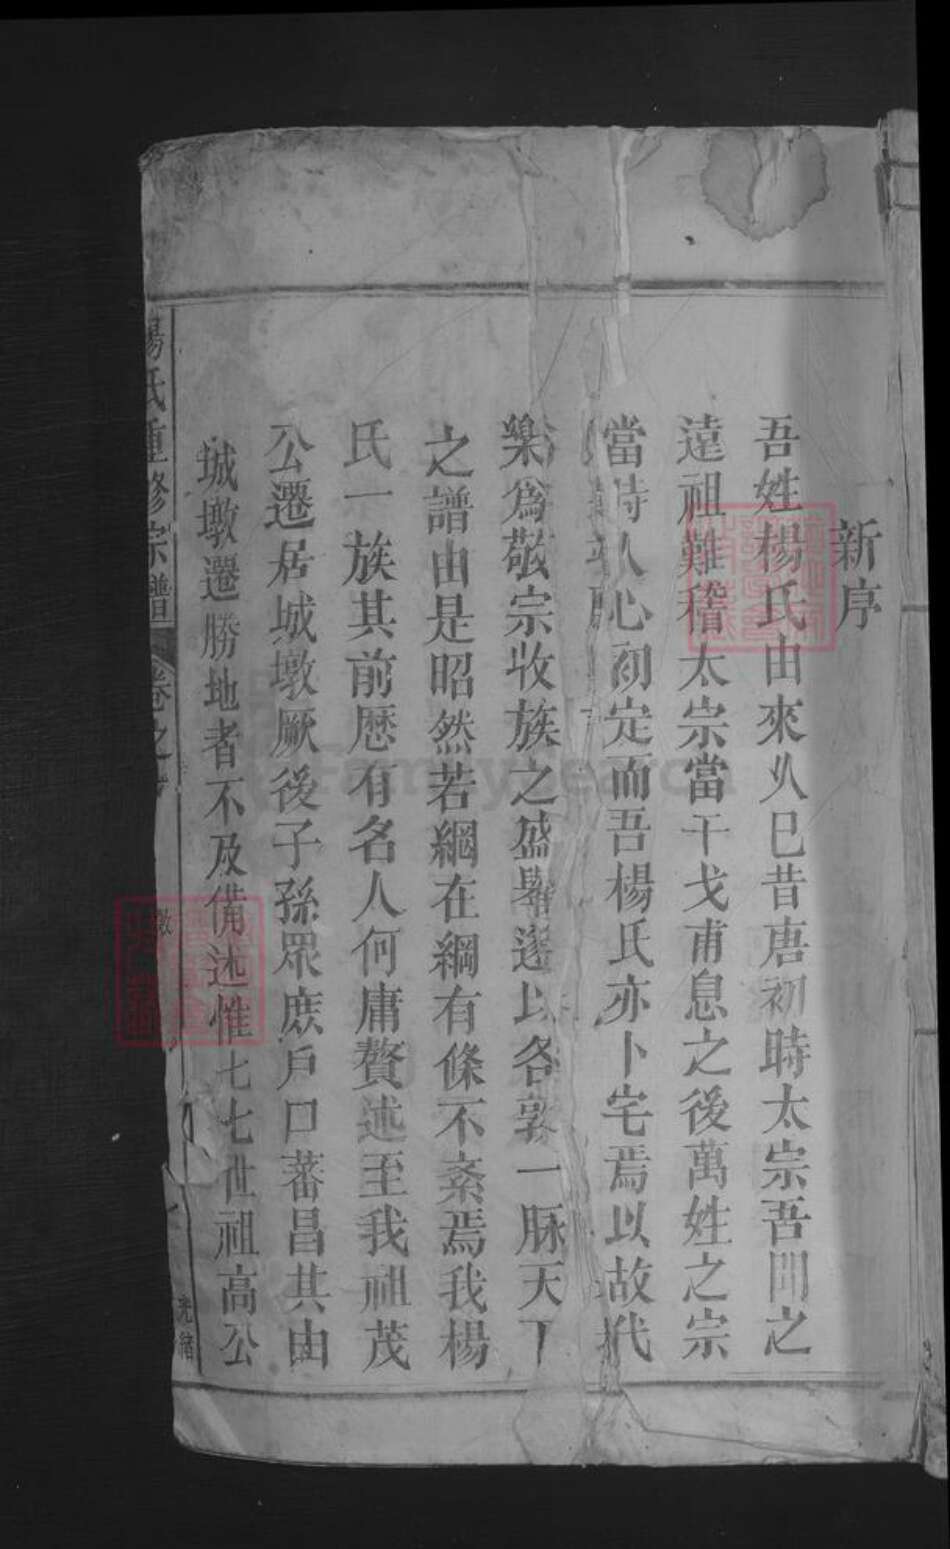 新序
吾姓楊氏由來久巳昔唐初時太宗吾聞之
遠祖難稽太宗當干戈甫息之後萬姓之宗
當時人心初定而吾楊氏亦卜宅焉以故代
樂爲敬宗收族之盛舉遂以各敦一脉天下
之譜由是昭然若網在綱有條不紊焉我楊
氏一族其前歷有名人何庸贅述至我祖茂
公遷居城墩厥後子孫眾庶戶口蕃昌其由
城墩遷勝地者不及備述惟七七世祖高公
楊氏重修宗譜 卷之